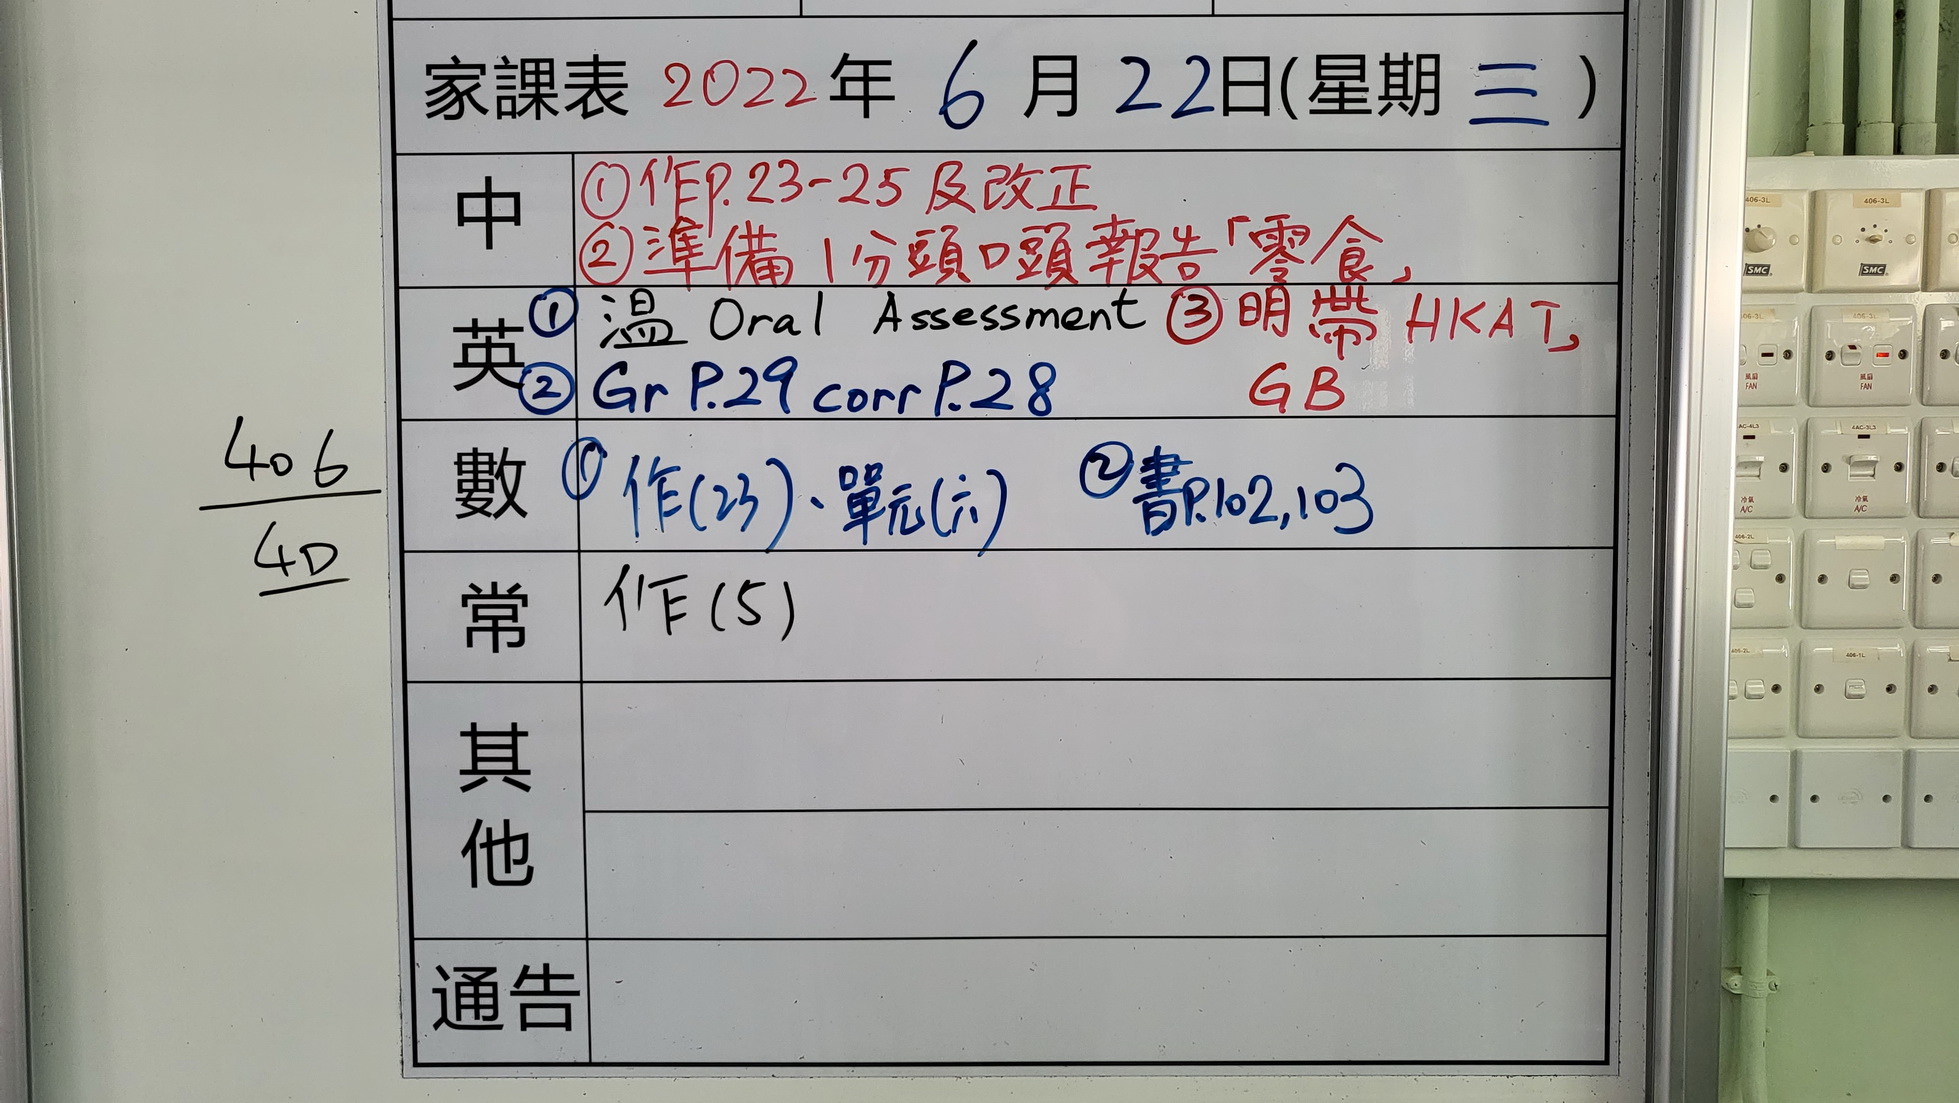 家課表 2022年 6月22日(星期三)
中
①作P.23-25及改正
②準備1分頭口頭報告「零食」
英
①溫 Oral Assessment ③明帶 HKAT,
②Gr P.29 corr P.28 GB
406
4D
數
①作(23)、單元(六) ②書P.102,103
常
作(5)
其他
通告
406-3L
406-3L
SMC
SMC
風扇
FAN
風扇
FAN
AC-4L3
AC-3L3
冷氣
A/C
冷氣
A/C
406-2L
406-2L
406-1L